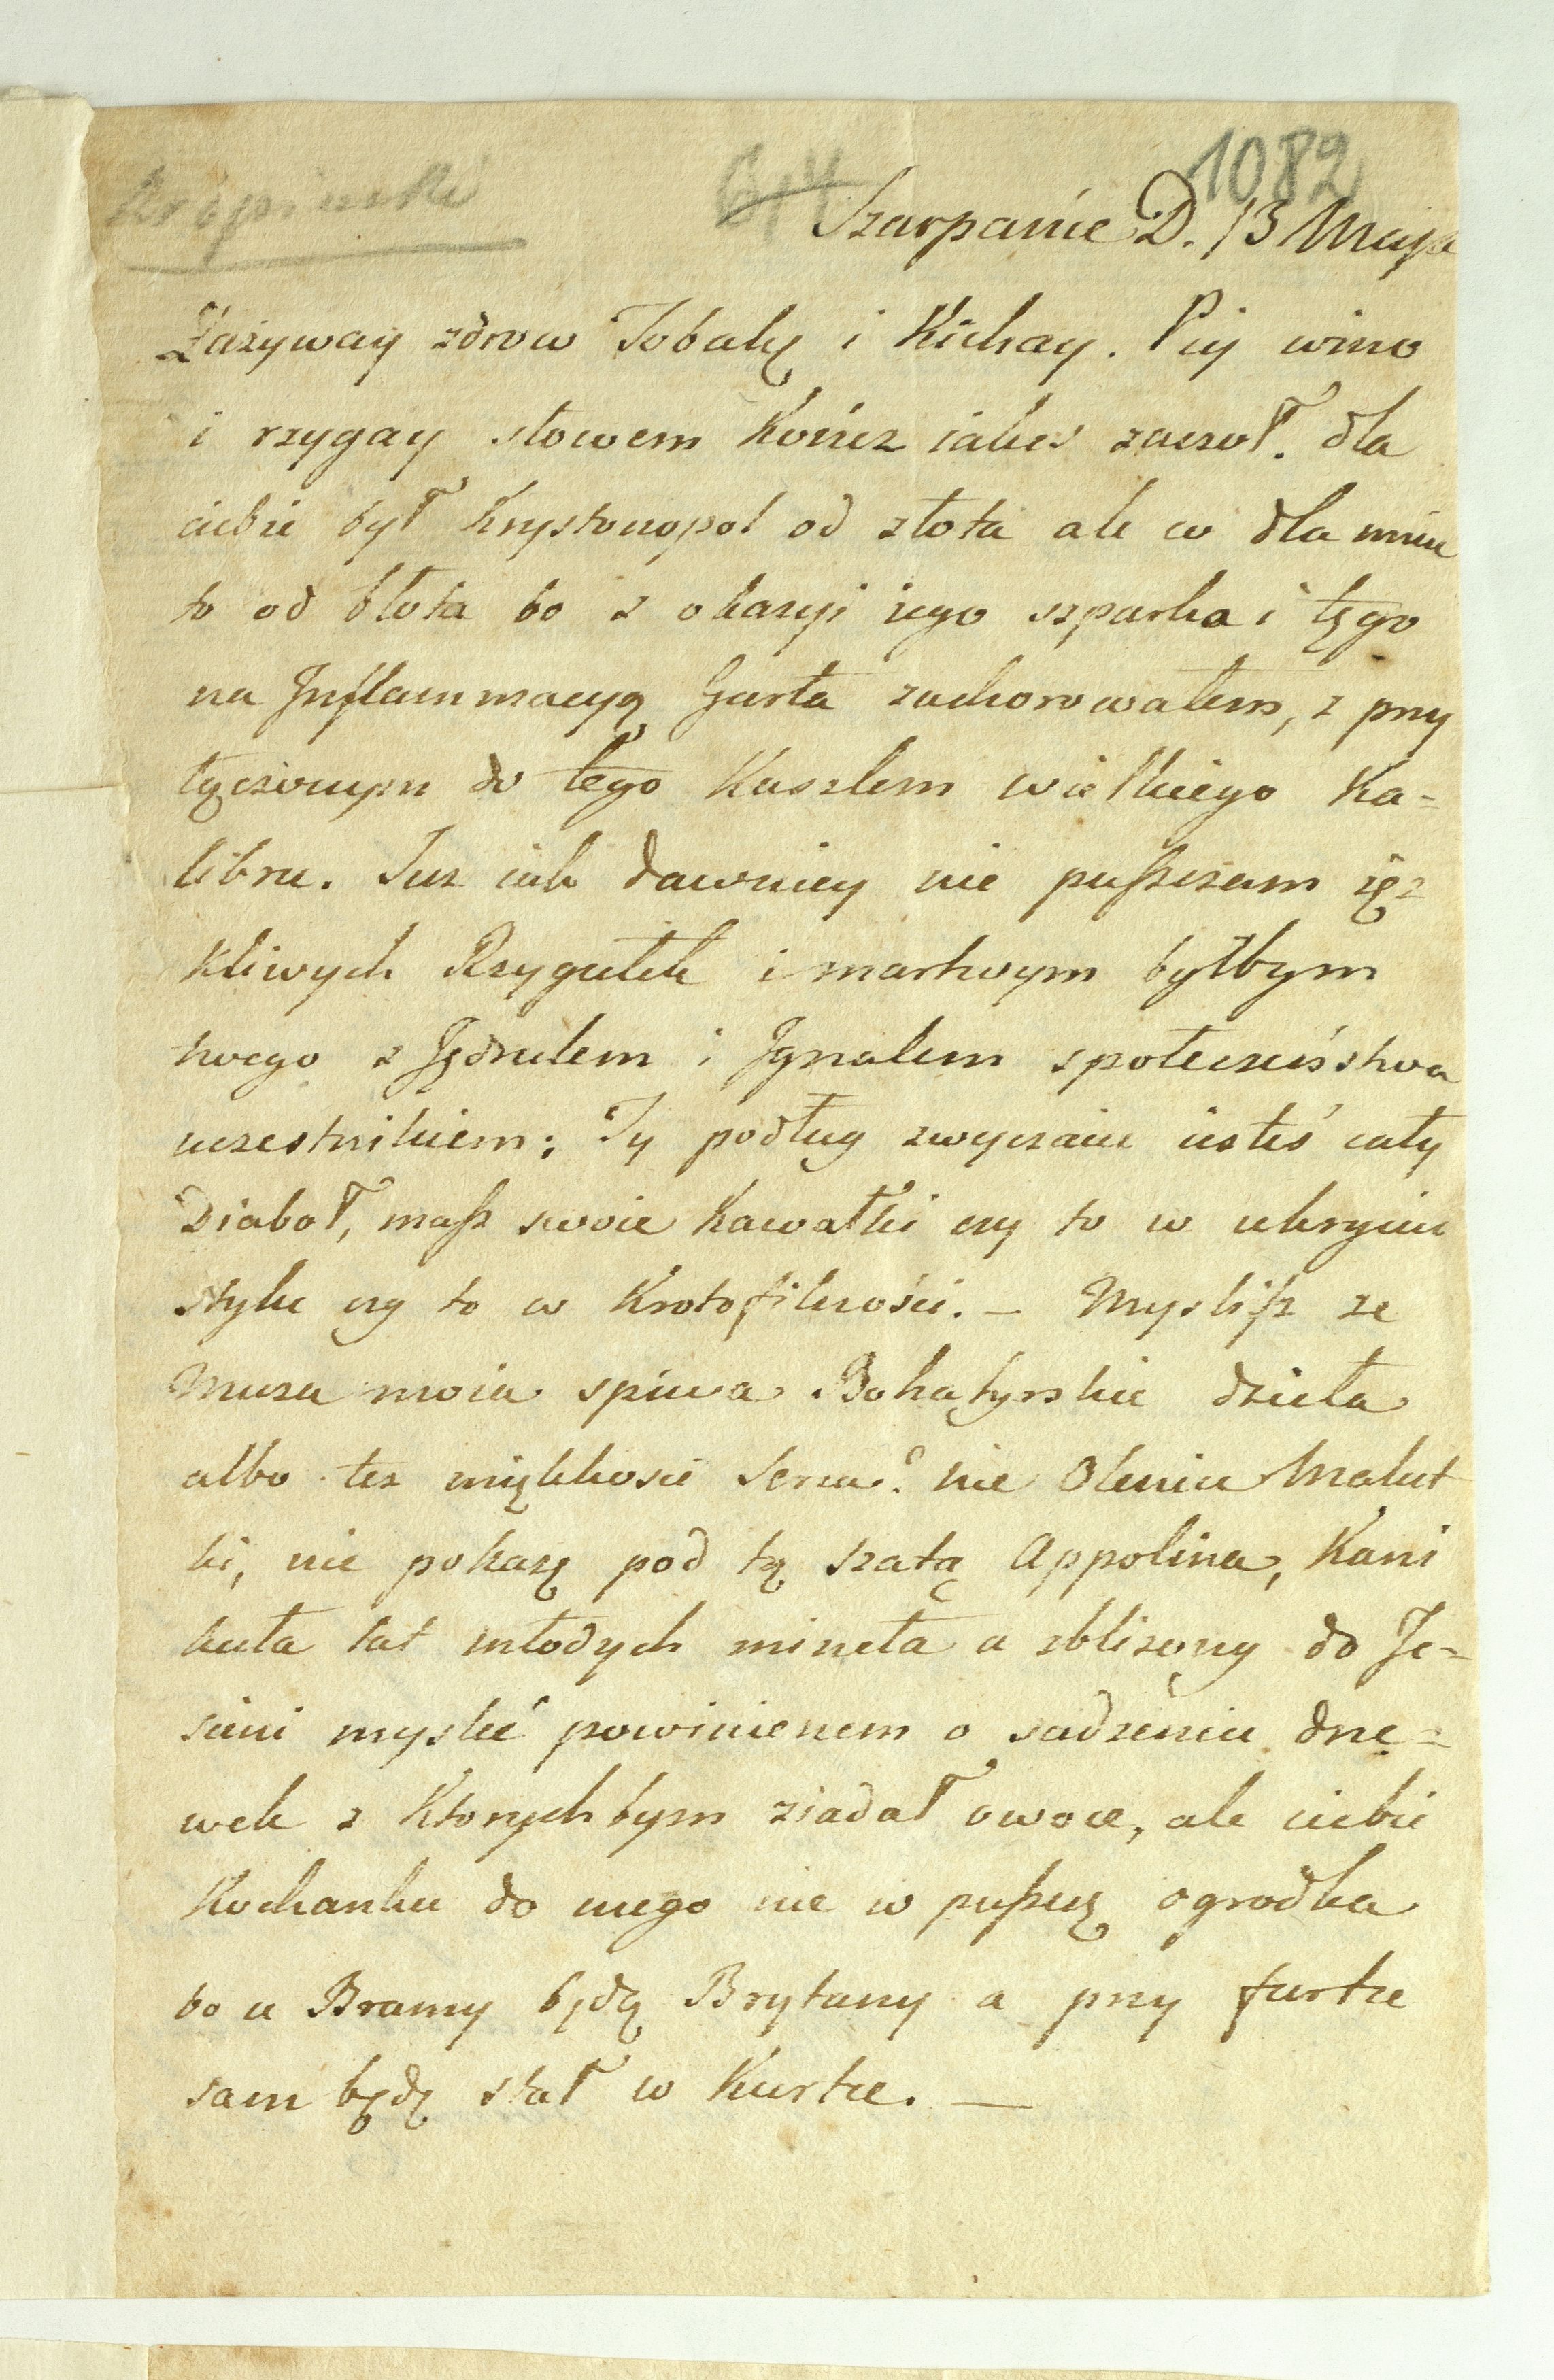 Kropinski
614
1082
Szarpanie D. 13 Maja
Zażyway zdrow Tobakę i Kichay. Pij wino
i rzygay słowem Kończ iakes zaczoł. dla
ciebie był Krystonopol od złota ale co dla mnie
to od błota bo z okazyi iego szparka i tęgo
na Jnflammacyą Garła zachorowałem, z przy
łączonym do tego Kaszlem wielkiego Ka-
libru. Juz iak dawniey nie puszczam ięz
kliwych Rzygulek i martwym byłbym
twego z Jędrulem i Jgnalem społeczeństwa
uczestnikiem; Ty podług zwyczaiu iesteś cały
Diaboł, masz swoie Kawałki czy to w ukryciu
stylu czy to w Krotofilności. – Myslisz ze
Muza moia spiewa Bohatyrskie dzieła
albo tez miękkosć Serca? nie Oleniu Malut
ki, nie pokazę pod tę szatą Appolina, Kani
kuła lat młodych mineła a zblizony do Je-
sieni mysleć powinienem o sadzeniu drze-
wek z Ktorychbym ziadał owoce, ale ciebie
Kochanku do mego nie w puszczę ogrodka
bo u Bramy będą Brytany a przy furtce
sam będę stał w Kurtce. —